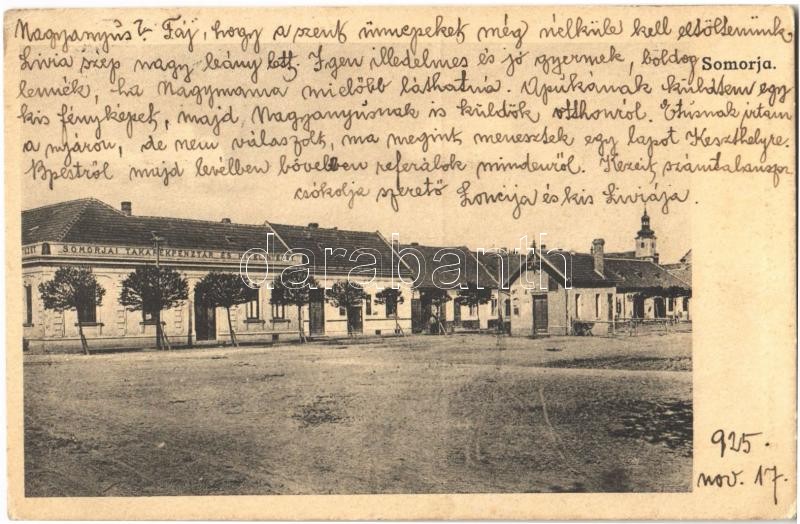 Nagyanyus? Fáj, hogy a szent ünnepeket még nélküle kell eltöltenünk.
Livia szép nagy leány lett. Igen illedelmes és jó gyermek, boldog
Somorja.
lennék, ha Nagymama mielőbb láthatná. Apukának küldtem egy
kis fényképet, majd Nagyanyusnak is küldök otthonról. Etusnak irtam
a nyáron, de nem válaszolt, ma megint menesztek egy lapot Keszthelyre.
Bpestről majd levélben bővebben referálok mindenről. Kezeit számtalanszor
csókolja szerető Loncija és kis Liviája.
SOMORJAI TAKARÉKPÉNZTÁR ÉS
darabanth
925.
nov. 17.